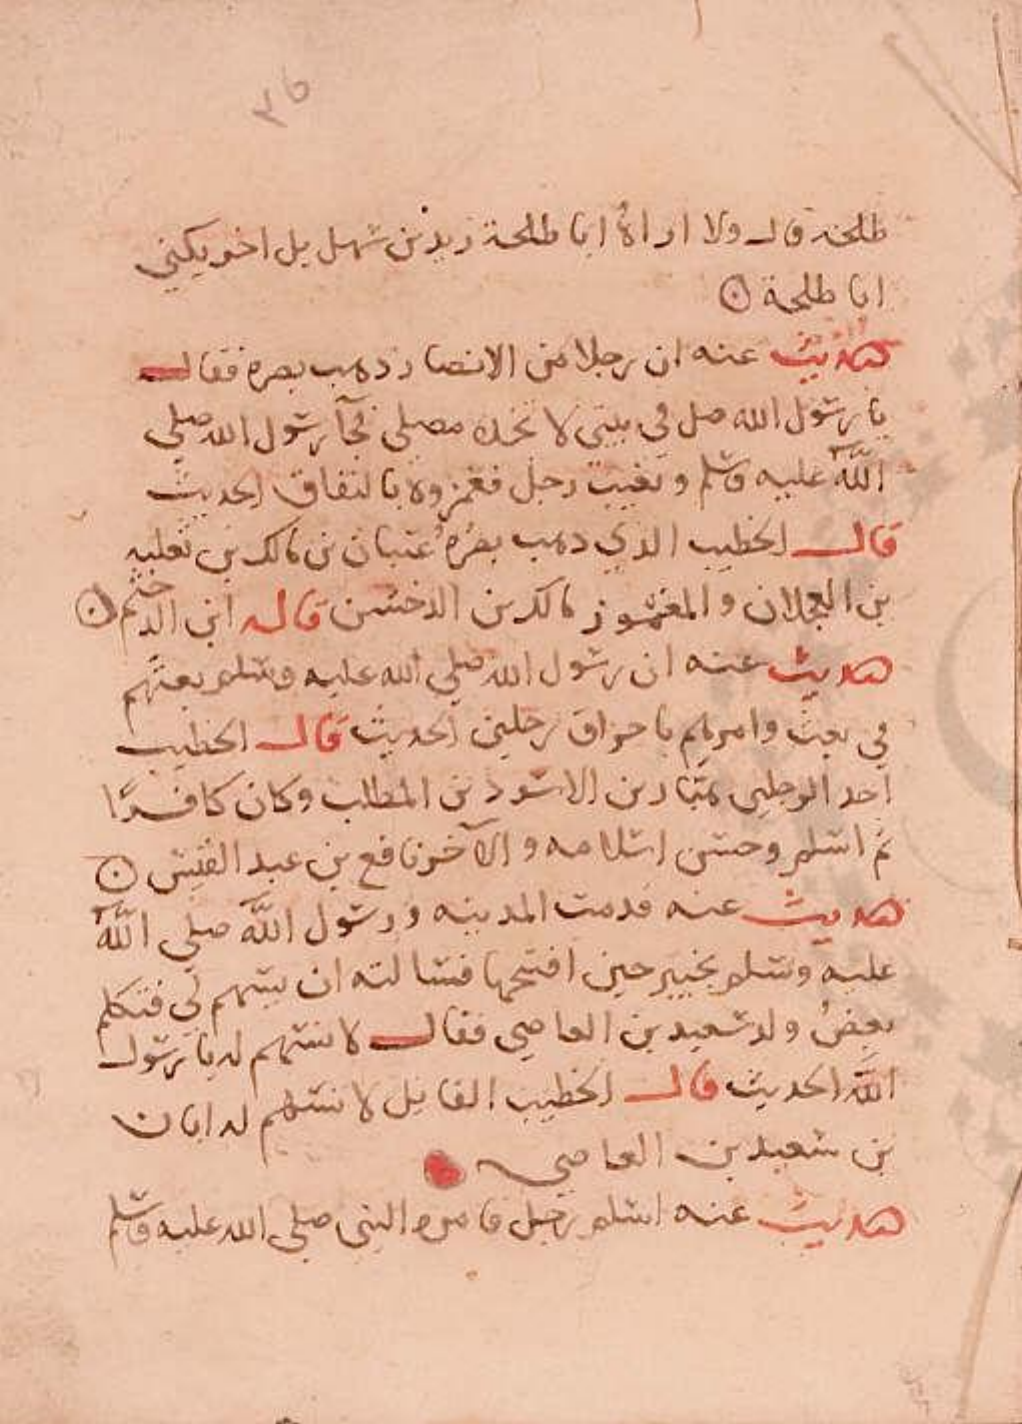 ٣٥
طلحة قال ولا اراهُ ابا طلحة زيد بن سهل بل اخر يكني
ابا طلحة
حديث عنه ان رجلا من الانصار ذهب بصره فقال
يا رسول الله صل في بيتي لا تخذه مصلي فجآ رسول الله صلي
الله عليه وسلم وتغيب رجل فغمزوه بالنفاق الحديث
قال الخطيب الذي ذهب بصره عتبان بن مالك بن ثعلبه
بن العجلان والمغموز مالك بن الدخشن قاله ابن الدخثم
حديث عنه ان رسول الله صلي الله عليه وسلم بعثهم
في بعث وامرهم باحراق رجلين الحديث قال الخطيب
احد الرجلين هبار بن الاسود بن المطلب وكان كافرًا
ثم اسلم وحسن اسلامه والآخر نافع بن عبد القيس
حديث عنه قدمت المدينه ورسول الله صلي الله
عليه وسلم بخيبر حين افتتحها فسالته ان يسهم لي فتكلم
بعضُ ولد سعيد بن العاصي فقال لا تسهم له يا رسول
الله الحديث قال الخطيب القايل لا تسهم له ابان
بن سعيد بن العاصي
حديث عنه اسلم رجل فامره النبي صلي الله عليه وسلم